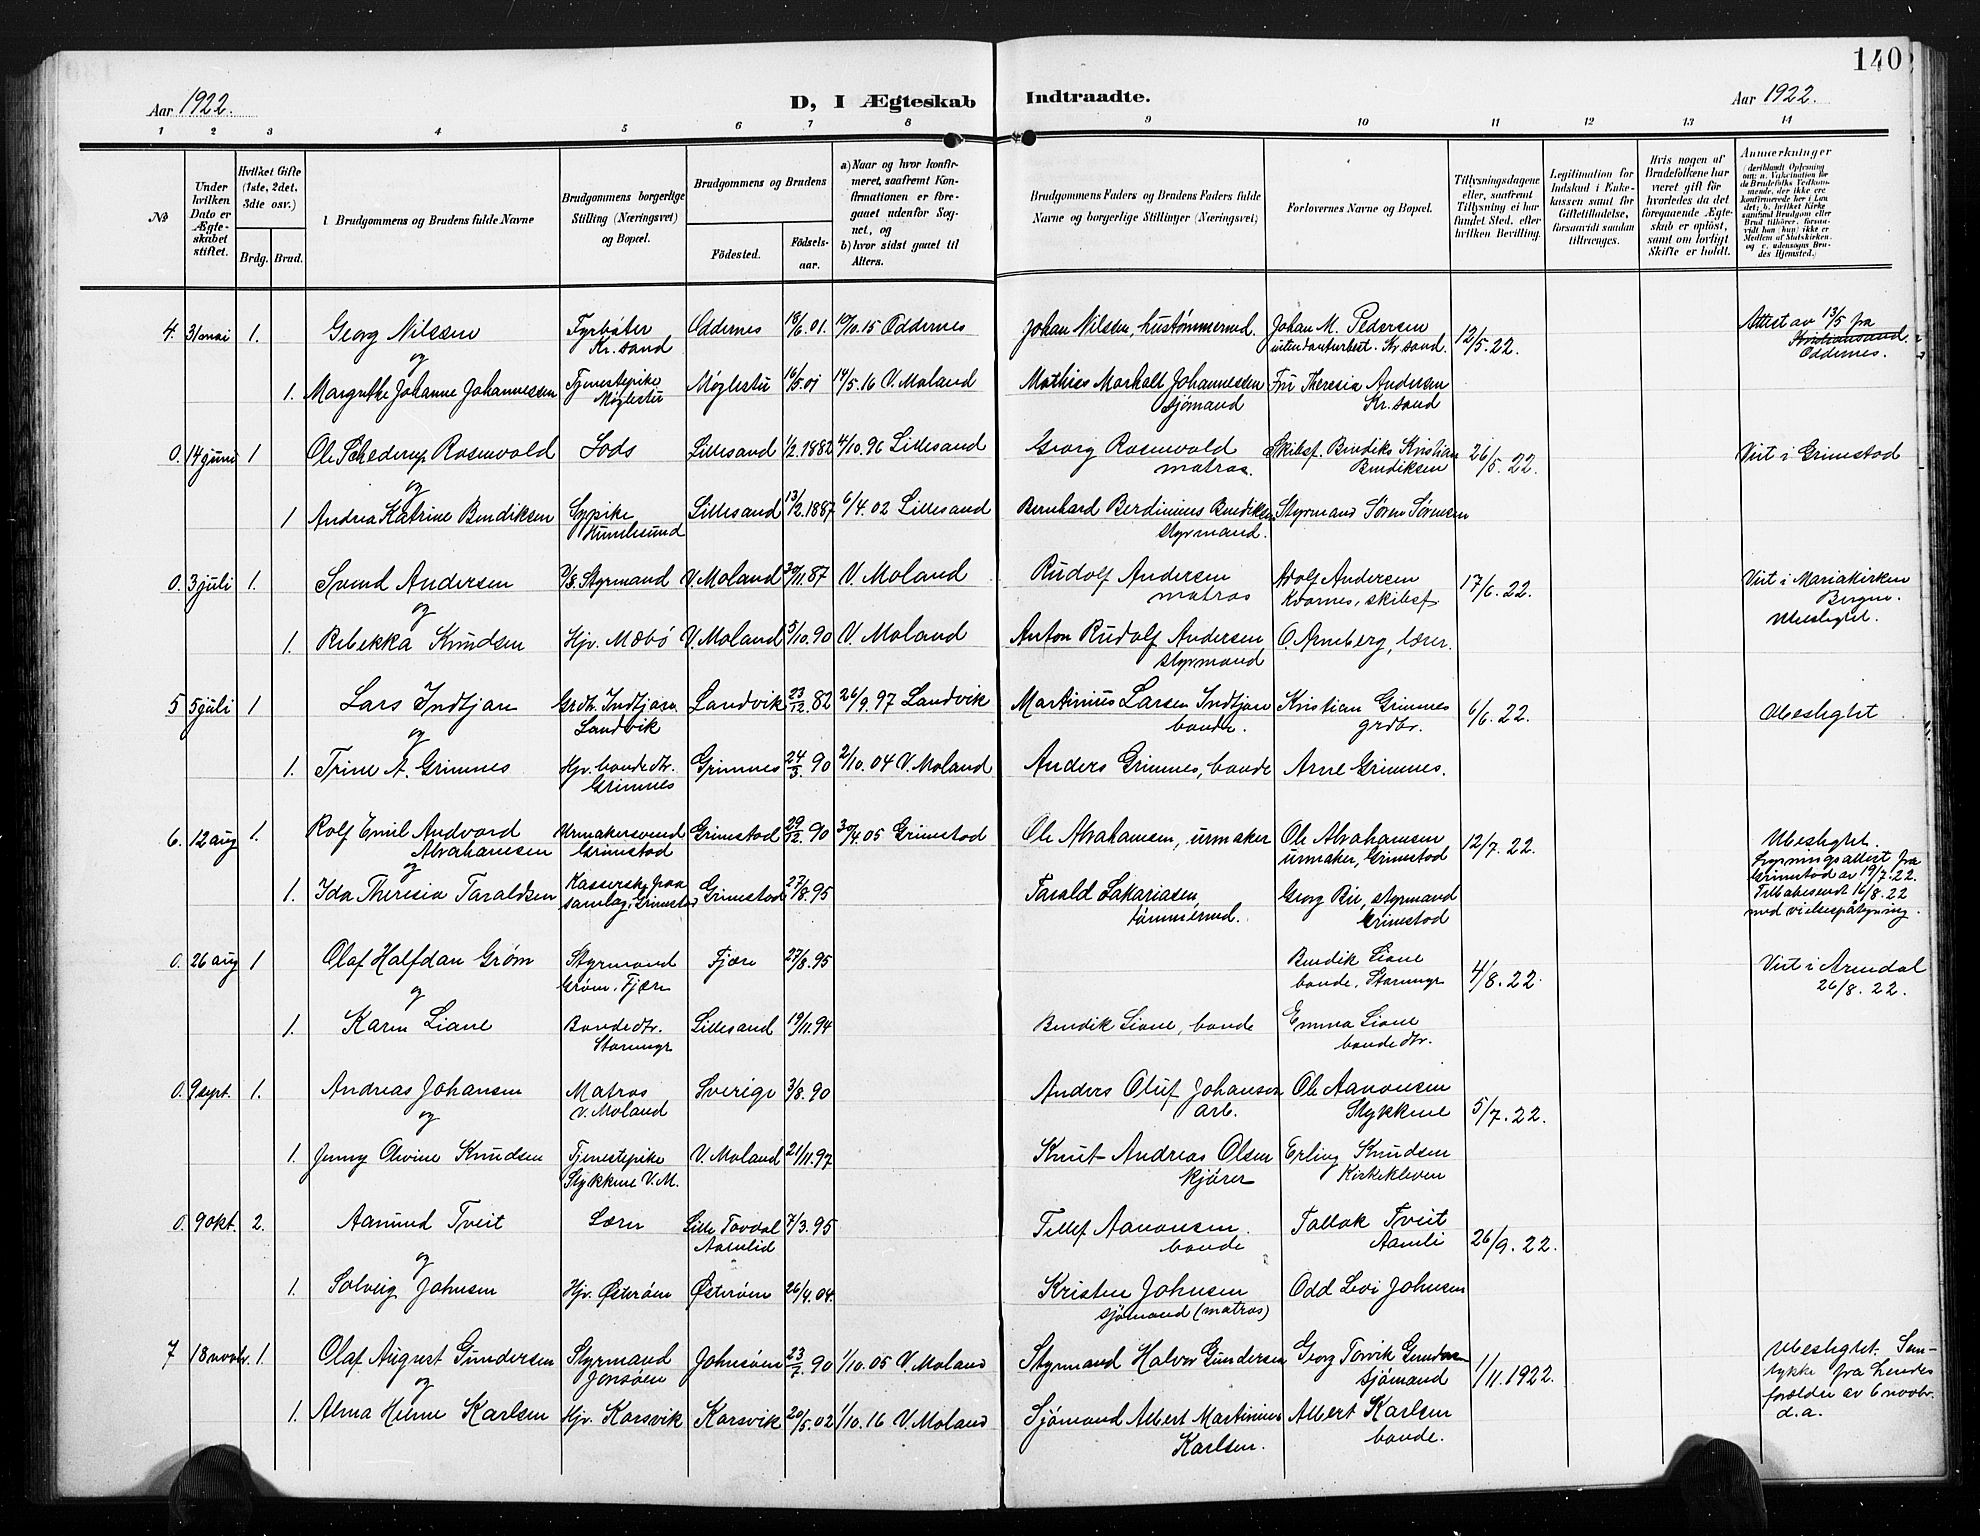 140
Aar 1922.
D, I Ægteskab Indtraadte.
Aar 1922.
1 2 3 4 5 6 7 8 9 10 11 12 13 14
No
Under hvilken Dato er Ægteskabet stiftet.
Hvilket Gifte (1ste, 2det, 3die osv.)
Brdg. Brud.
Brudgommens og Brudens fulde Navne
Brudgommens borgerlige Stilling (Næringsvei) og Bopæl.
Brudgommens og Brudens
Fødested. Fødselsaar.
a) Naar og hvor konfirmeret, saafremt Konfirmationen er foregaaet udenfor Sognet, og
b) hvor sidst gaaet til Alters.
Brudgommens Faders og Brudens Faders fulde Navne og borgerlige Stillinger (Næringsvei)
Forlovernes Navne og Bopæl.
Tillysningsdagene eller, saafremt Tillysning ei har fundet Sted, efter hvilken Bevilling.
Legitimation for Indskud i Enkekassen samt for Giftetilladelse, forsaavidt saadan tiltrænges.
Hvis nogen af Brudefolkene har været gift før hvorledes da det foregaaende Ægteskab er opløst, samt om lovligt Skifte er holdt.
Anmerkninger
4. 31 mai 1. Georg Nilssen Fyrbøter Oddernes 18/6.01. 10/10.15 Oddernes Johan Nilsen, hustømmermd. Johan M. Pedersen 12/5.22. Attest av 13/5 fra
og Kr.sand Kr.sand. Kristiansand.
Oddernes.
1. Margrethe Johanne Johannessen Tjenestepike Møglestu 16/5.01 14/5.16 V. Moland Mathias Markali Johannessen Fru Theresia Andersen
Møglestu sjømand Kr.sand
0. 14 juni 1 Ole Schederup Rosenvold Lods Lillesand 1/2.1882 4/10.96 Lillesand Georg Rosenvold Skibsf. Bendiks Kristian 26/5.22. Viet i Grimstad
og matros. Bendiksen
1 Andrea Katrine Bendiksen Sypike Lillesand 13/2.1887 6/4.02 Lillesand Bernhard Berdinius Bendiksen Styrmand Søren Sørensen
Humlesund styrmand.
0. 3 juli 1. Svend Andersen Styrmand V. Moland 30/11.87 V. Moland Rudolf Andersen Adolf Andersen 17/6.22. Viet i Mariakirken
og matros Kvarnes, skibsf Bergen.
Ubeslegtet.
1. Rebekka Knudsen Hjv. Mæbø V. Moland 5/10.90 V. Moland Anton Rudolf Andersen O. Arneberg, lærer.
styrmand
5 5 juli 1 Lars Indtjøn Grdbr. Indtjøn Landvik 23/12.82 26/9.97 Landvik Martinius Larsen Indtjøn Kristian Grimnes 6/6.22. Ubeslegtet
og Landvik bonde. grdbr.
1. Trine A. Grimnes Hjv. bondedtr. Grimnes 24/3.90 2/10.04 V. Moland Anders Grimnes, bonde Arne Grimnes.
Grimnes
6. 12 aug 1. Rolf Emil Andvord Urmakersvend Grimstad 29/12.90 30/4.05 Grimstad Ole Abrahamsen, urmaker Ole Abrahamsen 12/7.22. Ubeslegtet.
Abrahamsen Grimstad urmaker, Grimstad Lysningsattest fra
og Grimstad av 19/7.22.
1. Ida Theresia Taraldsen Grimstad 27/8.95 Tarald Zakariasen, Georg Bie, styrmand Tilbakesendt 16/8.22
samlag, Grimstad tømmermd. Grimstad med vielsespåtegning.
0. 26 aug 1 Olaf Halfdan Grøm Styrmand Fjære 27/8.95 Bendik Liane 4/8.22. Viet i Arendal
og Grøm, Fjære bonde, 26/8.22.
1. Karen Liane Bondedtr. Lillesand 19/11.94 Bendik Liane, bonde Emma Liane
bondedtr.
0. 9 sept. 1. Andreas Johansen Matros Sverige 3/8.90 Anders Oluf Johansen Ole Aanonsen 5/7.22.
og V. Moland arb. Stykkene
1. Jenny Olevine Knudsen Tjenestepike V. Moland 21/11.97 Knut Andreas Olsen Erling Knudsen
Stykkene V.M. kjører Kirkekleven
0. 9 okt. 2. Aamund Tveit Lærer Lille Tovdal 7/3.95 Tellef Aanonsen Tallak Tveit 26/9.22.
og Aamlid bonde Aamli
1. Solveig Johnsen Hjv. Østerøen Østerøen 26/4.04. Kristen Johnsen Odd Levi Johnsen
sjømand (matros)
7 18 novbr. 1. Olaf August Gundersen Styrmand Johnsøen 23/7.90 1/10.05 V. Moland Styrmand Halvor Gundersen Georg Torvik Gundersen 1/11.1922. Ubeslegtet. Sam-
og Jonsøen sjømand tykke fra hendes
forældre av 6 novbr.
1. Alma Helene Karlsen Hjv. Korsvik Korsvik 20/5.02 1/10.16 V. Moland Sjømand Albert Martinius Albert Karlsen d.a.
Karlsen. bonde.